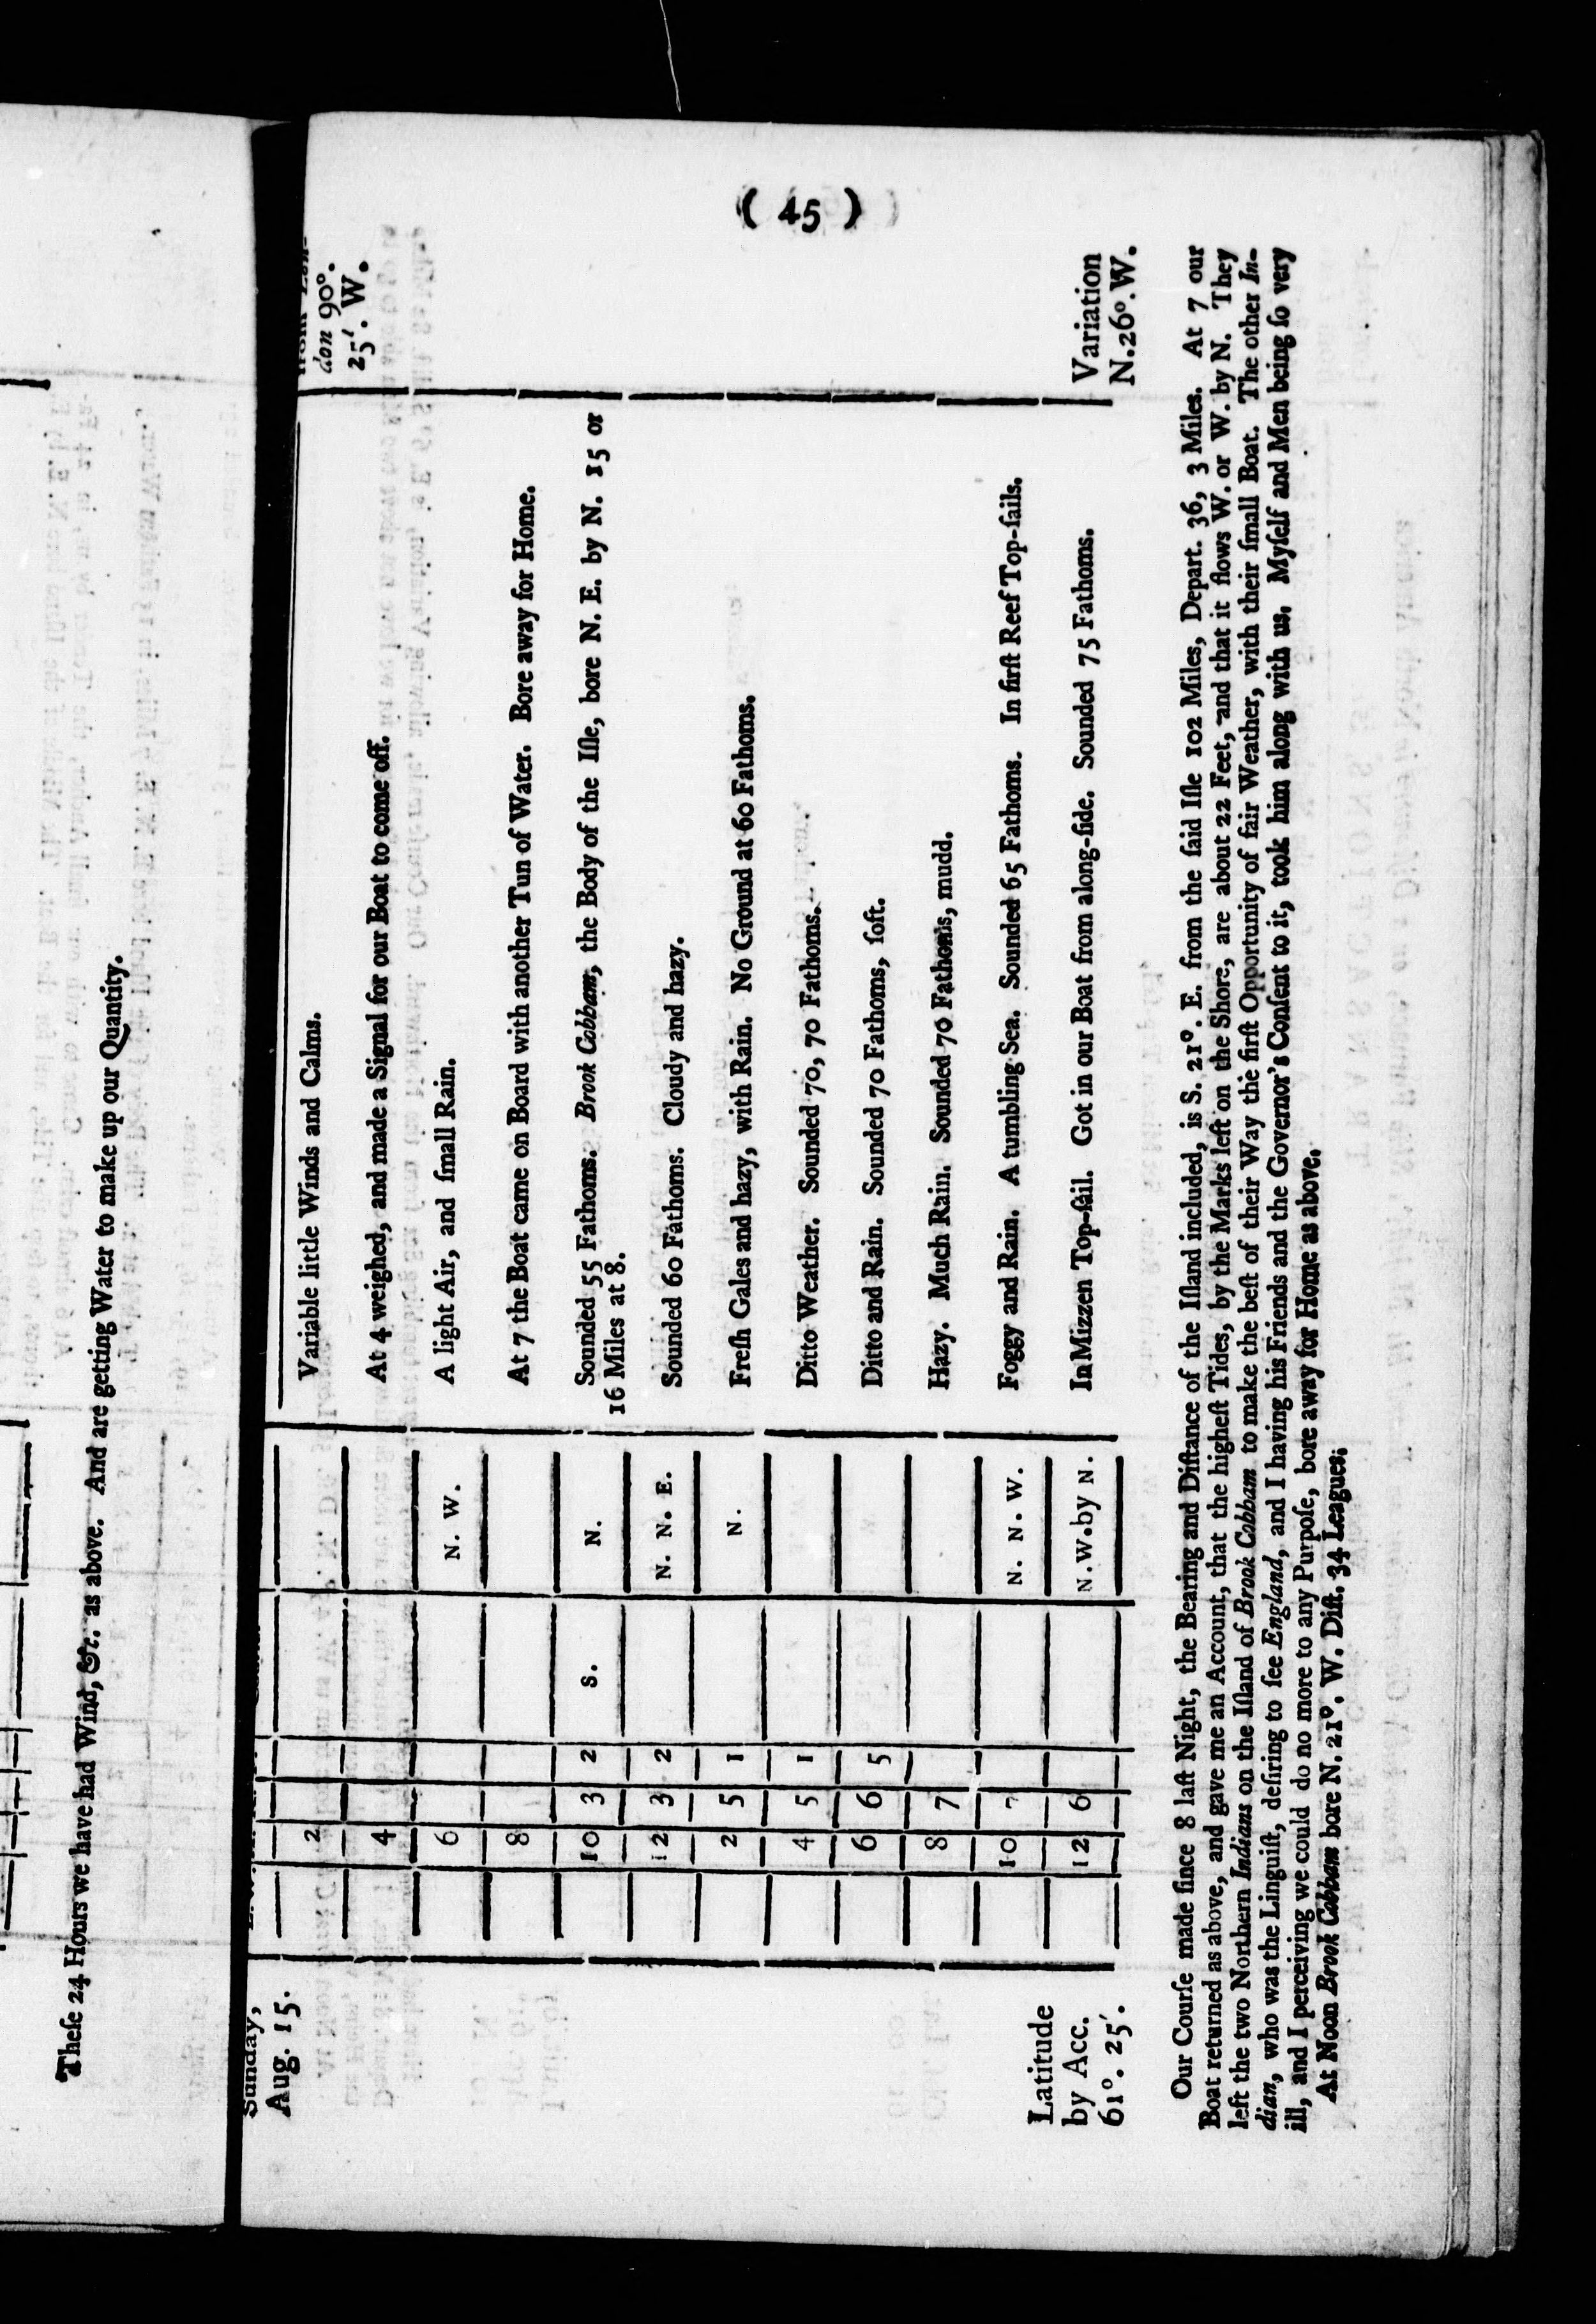 Theſe 24 Hours we have had Wind, &c. as above. And are getting Water to make up our Quantity.
( 45 )
Sunday,
Aug. 15.
don 90°.
25'. W.
2 Variable little Winds and Calms.
4 At 4 weighed, and made a Signal for our Boat to come off.
6 N. W. A light Air, and ſmall Rain.
8 At 7 the Boat came on Board with another Tun of Water. Bore away for Home.
10 3 2 S. N. Sounded 55 Fathoms. Brook Cobham, the Body of the Iſle, bore N. E. by N. 15 or
16 Miles at 8.
12 3 2 N. N. E. Sounded 60 Fathoms. Cloudy and hazy.
2 5 1 N. Freſh Gales and hazy, with Rain. No Ground at 60 Fathoms.
4 5 1 Ditto Weather. Sounded 70, 70 Fathoms.
6 6 5 Ditto and Rain. Sounded 70 Fathoms, ſoft.
8 7 Hazy. Much Rain. Sounded 70 Fathoms, mudd.
10 7 N. N. W. Foggy and Rain. A tumbling Sea. Sounded 65 Fathoms. In firſt Reef Top-ſails.
12 6 N.W.by N. In Mizzen Top-ſail. Got in our Boat from along-ſide. Sounded 75 Fathoms.
Latitude
by Acc.
61°. 25'.
Variation
N.26°.W.
Our Courſe made ſince 8 laſt Night, the Bearing and Diſtance of the Iſland included, is S. 21°. E. from the ſaid Iſle 102 Miles, Depart. 36, 3 Miles. At 7 our
Boat returned as above, and gave me an Account, that the higheſt Tides, by the Marks left on the Shore, are about 22 Feet, and that it flows W. or W. by N. They
left the two Northern Indians on the Iſland of Brook Cobham to make the beſt of their Way the firſt Opportunity of fair Weather, with their ſmall Boat. The other In-
dian, who was the Linguiſt, deſiring to ſee England, and I having his Friends and the Governor's Conſent to it, took him along with us. Myſelf and Men being ſo very
ill, and I perceiving we could do no more to any Purpoſe, bore away for Home as above.
At Noon Brook Cobham bore N. 21°. W. Diſt. 34 Leagues.